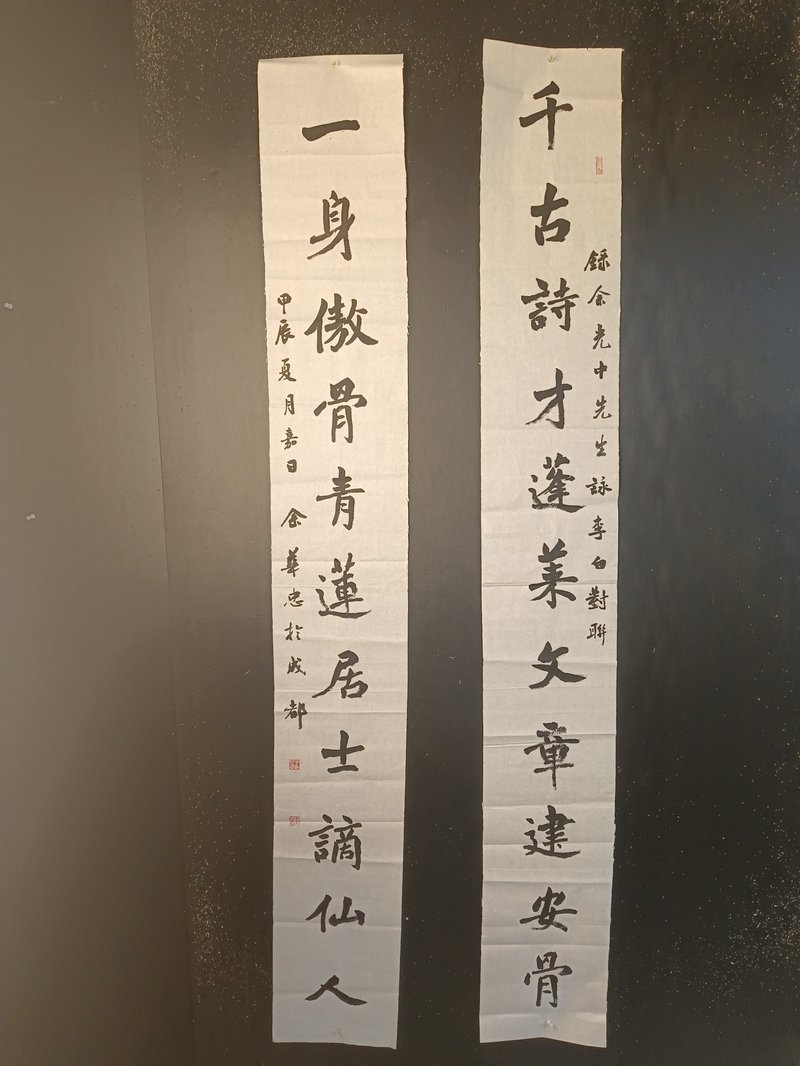 千古詩才蓬萊文章建安骨
錄余光中先生詠李白對聯
一身傲骨青蓮居士謫仙人
甲辰夏月嘉日余華忠於成都